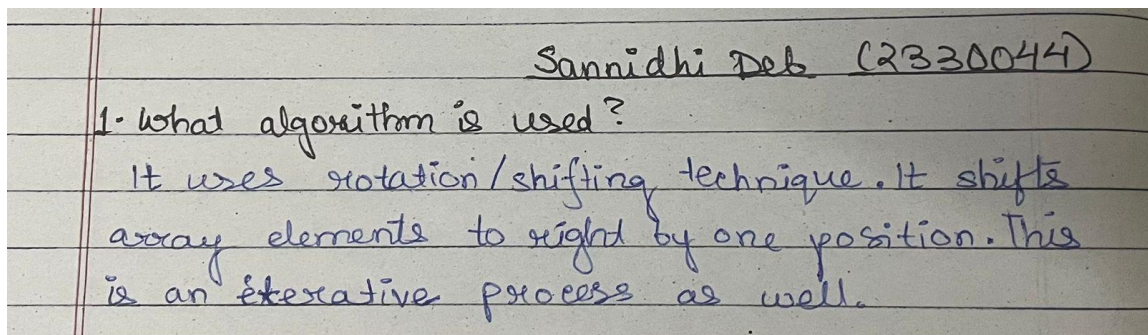 Sannidhi Deb (2330044)
1. What algorithm is used?
It uses rotation/shifting technique. It shifts
array elements to right by one position. This
is an iterative process as well.